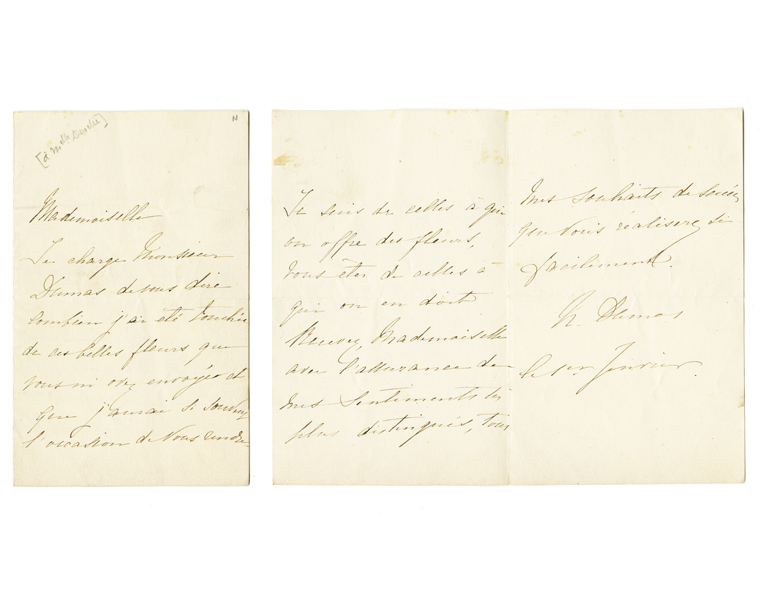 N
[à Mlle
Mademoiselle
Je charge Monsieur
Dumas de vous dire
combien j'ai été touchée
de ces belles fleurs que
vous m'avez envoyées et
que j'aurai si souvent
l'occasion de vous rendre.
Je suis de celles à qui
on offre des fleurs,
vous êtes de celles à
qui on en doit
Recevez, Mademoiselle
avec l'assurance de
mes sentiments les
plus distingués, tous
mes souhaits de succès
que vous réaliserez si
facilement.
N. Dumas
le 1er Janvier.